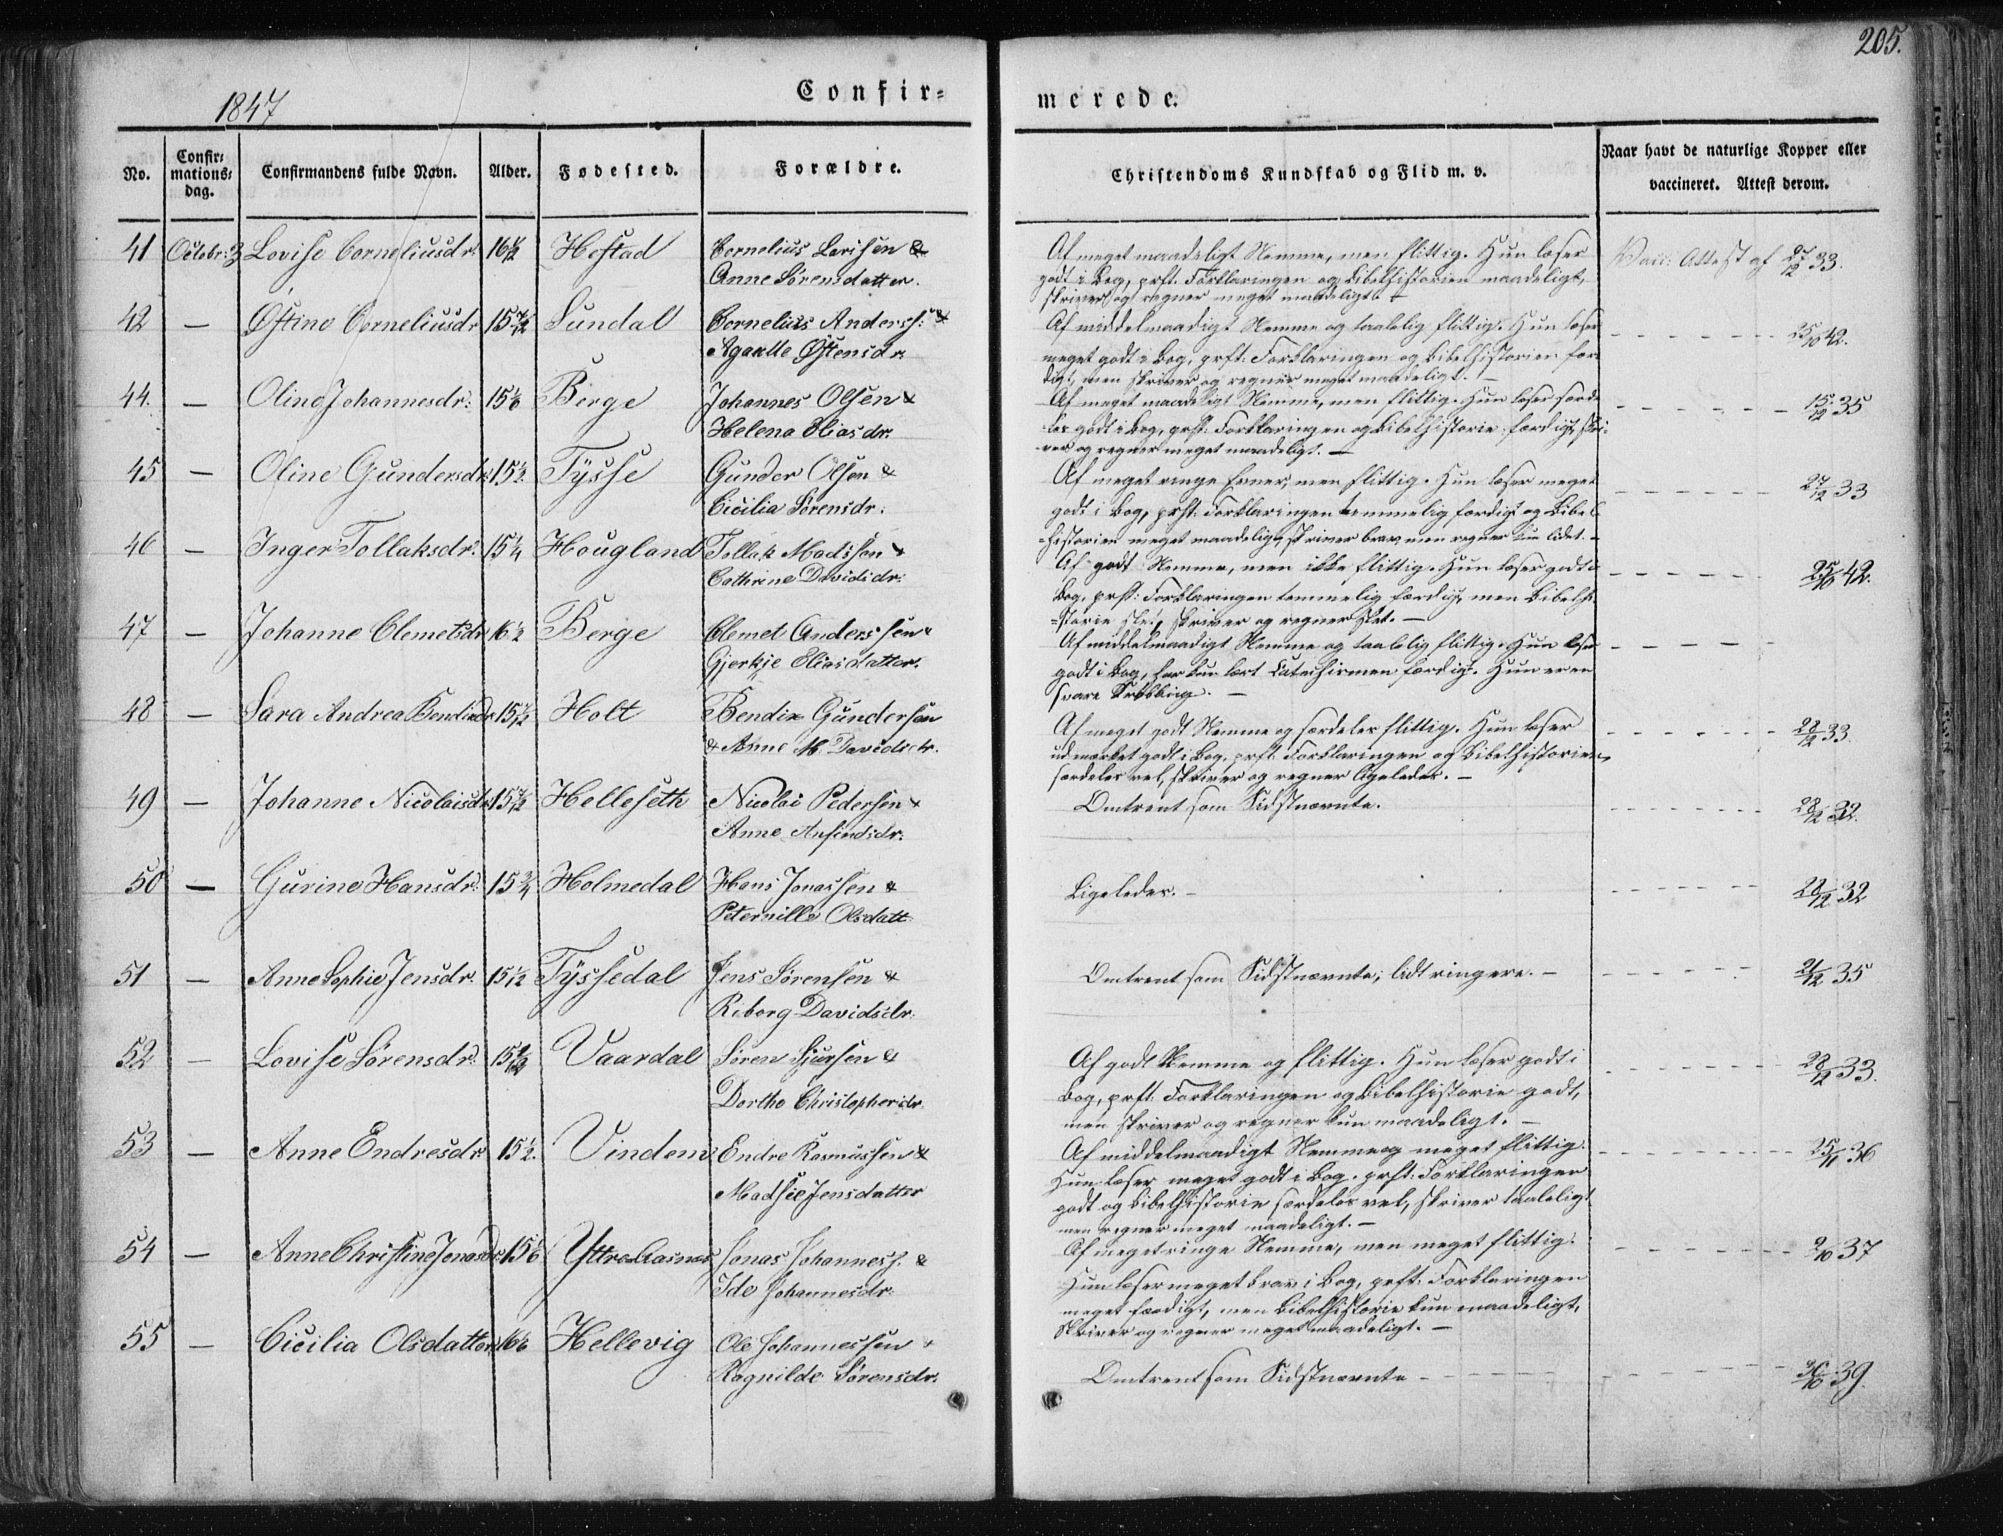 205.
1847
Confir=
merede.
No.
Confir= mations= dag.
Confirmandens fulde Navn.
Alder.
Fødested.
Forældre.
Christendoms Kundskab og Flid m. v.
Naar havt de naturlige Kopper eller
vaccineret. Attest derom.
41 Octobr: 3 Lovise Corneliusdr. 16 1/2 Hestad Cornelius Larssen &
Anne Sørensdatter.
Af meget maadeligt Nemme, men flittig. Hun læser
godt i Bog, prft. Forklaringen og Bibelhistorien maadeligt,
skriver og regner meget maadeligt.
Vacc. Attest af 27/12 33.
42 — Østine Corneliusdr 15 7/12 Sundal Cornelius Anderss: &
Agaatte Østensdr.
Af middelmaadigt Nemme og taalelig flittig. Hun læser
meget godt i Bog, prft. Forklaringen og Bibelhistorien fær-
digt, men skriver og regner meget maadeligt. —
25/10 42.
44. — Oline Johannesdr. 15 1/6 Berge Johannes Olsen &
Helena Eliasdr.
Af meget maadeligt Nemme, men flittig. Hun læser særde-
les godt i Bog, prft. Forklaringen og Bibelhistorie færdigt, skri-
ver og regner meget maadeligt. —
15/12 35
45 — Oline Gundersdr 15 1/2 Tysse Gunder Olsen &
Cicilia Sørensdr.
Af meget ringe Evner, men flittig. Hun læser meget
godt i Bog, prft. Forklaringen temmelig færdigt og Bibel-
historien meget maadeligt, skriver brav men regner kun lidet. —
27/12 33
46 — Inger Tollaksdr. 15 1/4 Hougland Tollak Madssen &
Cathrine Davidsdr.
Af godt Nemme, men ikke flittig. Hun læser godt i
Bog, prft. Forklaringen temmelig færdigt, men Bibelhi-
storie slet, skriver og regner slet. —
25/10 42.
47 — Johanne Clemetsdr 16 1/2 Berge Clemet Anderssen &
Gjertje Eliasdatter.
Af middelmaadigt Nemme og taalelig flittig. Hun læser
godt i Bog, har kun lært Catechismen færdigt. Hun er en
svare Krøbling. —
48 — Sara Andrea Bendixdr 15 7/12 Holt Bendix Gundersen
& Anne M. Davidsdr.
Af meget godt Nemme og særdeles flittig. Hun læser
udmærket godt i Bog, prft. Forklaringen og Bibelhistorien
særdeles vel, skriver og regner ligeledes. —
28/12 33.
49 — Johanne Nicolaisdr 15 7/12 Helleseth Nicolai Pedersen &
Anne Anfindsdr.
Omtrent som Sidstnævnte.
28/12 32.
50 — Gurine Hansdr. 15 3/4 Holmedal Hans Jonassen &
Peternille Olsdatt.
Ligeledes. —
28/12 32
51 — Anne Sophie Jensdr. 15 1/12 Tyssedal Jens Sørensen &
Riborg Davidsdr.
Omtrent som Sidstnævnte, lidt ringere. —
21/12 35
52 — Lovise Sørensdr. Vaardal Søren Sjursen &
Dorthe Christophersdr.
Af godt Nemme og flittig. Hun læser godt i
Bog, prft. Forklaringen og Bibelhistorie godt,
men skriver og regner kun maadeligt. —
28/12 33.
53 — Anne Endresdr 15 1/2. Vindem Endre Rasmussen &
Madsie Jensdatter
Af middelmaadigt Nemme og meget flittig.
Hun læser meget godt i Bog, prft. Forklaringen
godt og Bibelhistorie særdeles vel, skriver taaleligt
men regner meget maadeligt. —
25/11 36
54 — Anne Christine Jonasdr. 15 1/6 Yttre Aasnes Jonas Johanness. &
Ide Johannesdr.
Af meget ringe Nemme, men meget flittig.
Hun læser meget brav i Bog, prft. Forklaringen
meget færdigt, men Bibelhistorie kun maadeligt,
skriver og regner meget maadeligt. —
2/10 37
55 — Cicilia Olsdatter 16 1/6 Hellevig Ole Johannessen &
Ragnilde Sørensdr.
Omtrent som Sidstnævnte
30/10 39.